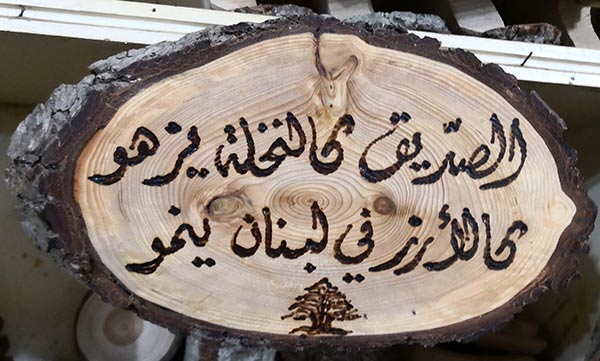 الصدّيق كالنخلة يزهو
كالأرز في لبنان ينمو